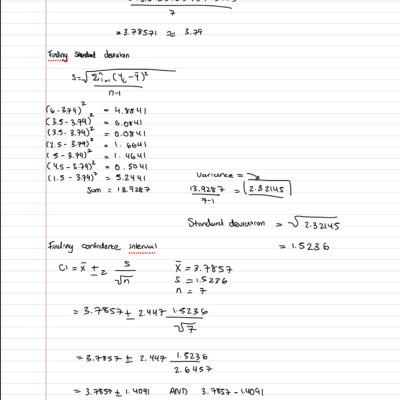 7
= 3.78571 ≈ 3.79
Finding standard deviation
S = √ Σⁿᵢ₌₁ (Yᵢ - Ȳ)²
n-1
(6 - 3.79)² = 4.8841
(3.5 - 3.79)² = 0.0841
(3.5 - 3.79)² = 0.0841
(2.5 - 3.79)² = 1.6641
(5 - 3.79)² = 1.4641
(4.5 - 3.79)² = 0.5041
(1.5 - 3.79)² = 5.2441
Sum = 13.9287
Variance =
13.9287 = 2.32145
7-1
Standard deviation = √2.32145
= 1.5236
Finding confidence interval
CI = x̄ ± z s
√n
x̄ = 3.7857
S = 1.5236
n = 7
= 3.7857 ± 2.447 1.5236
√7
= 3.7857 ± 2.447 1.5236
2.6457
= 3.7857 ± 1.4091 AND 3.7857 - 1.4091